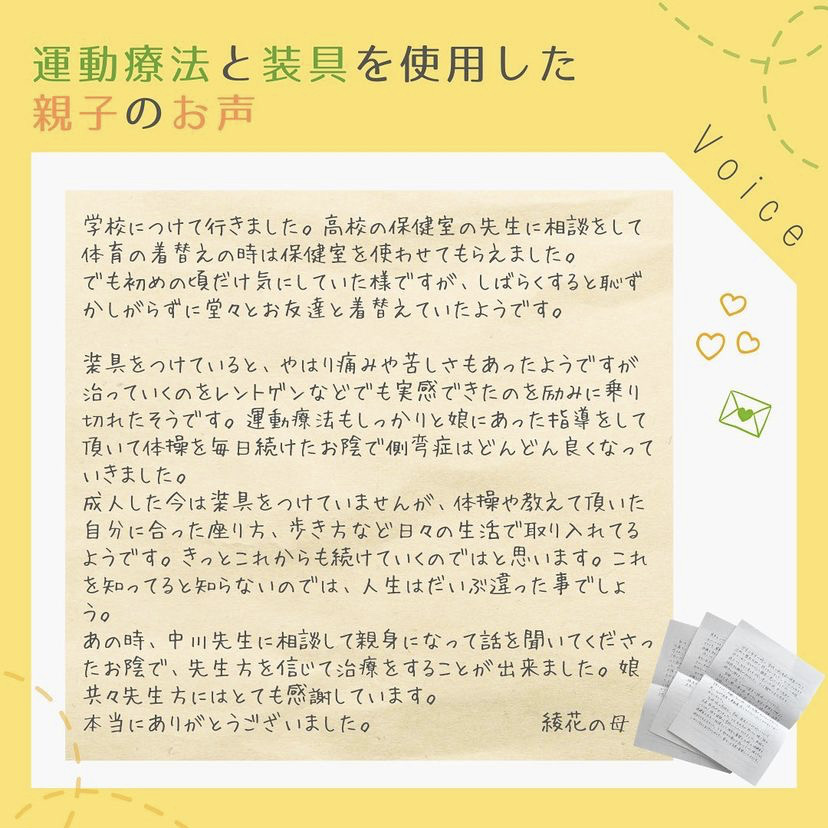 運動療法と装具を使用した
親子のお声
Voice
学校につけて行きました。高校の保健室の先生に相談をして
体育の着替えの時は保健室を使わせてもらえました。
でも初めの頃だけ気にしていた様ですが、しばらくすると恥ず
かしがらずに堂々とお友達と着替えていたようです。
装具をつけていると、やはり痛みや苦しさもあったようですが
治っていくのをレントゲンなどでも実感できたのを励みに乗り
切れたそうです。運動療法もしっかりと娘にあった指導をして
頂いて体操を毎日続けたお陰で側弯症はどんどん良くなって
いきました。
成人した今は装具をつけていませんが、体操や教えて頂いた
自分に合った座り方、歩き方など日々の生活で取り入れてる
ようです。きっとこれからも続けていくのではと思います。これ
を知ってると知らないのでは、人生はだいぶ違った事でしょ
う。
あの時、中川先生に相談して親身になって話を聞いてくださっ
たお陰で、先生方を信じて治療をすることが出来ました。娘
共々先生方にはとても感謝しています。
本当にありがとうございました。 綾花の母